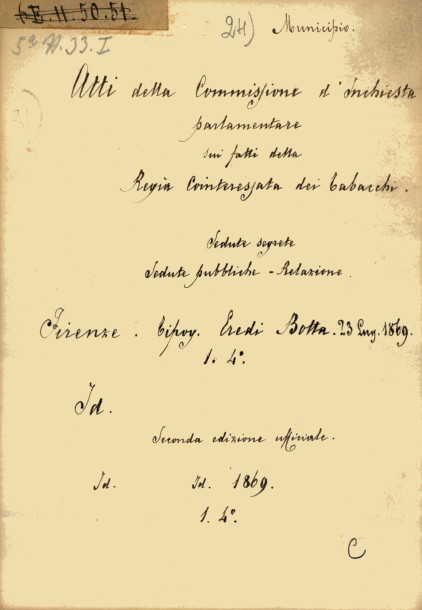 6 E. 11. 50. 51.
5ª A. 33. I
24) Municipio.
Atti della Commissione d'Inchiesta
parlamentare
sui fatti della
Regìa Cointeressata dei Tabacchi.
Sedute segrete
Sedute pubbliche - Relazione.
Firenze. Tipog. Eredi Botta. 23 Lug. 1869.
1. 4°.
Id.
Seconda edizione ufficiale.
Id. Id. 1869.
1. 4°.
C